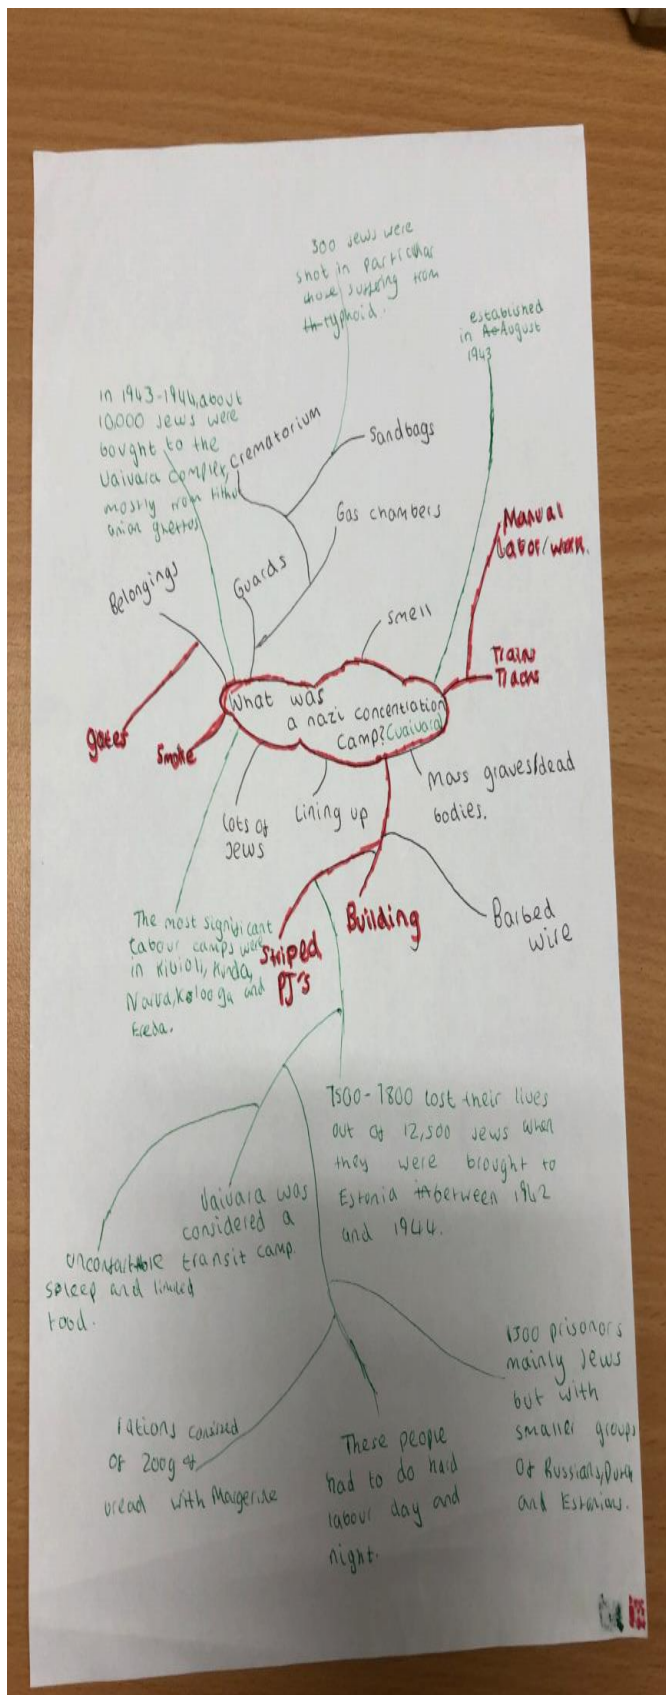 300 Jews were
shot in particular
those suffering from
th typhoid.
established
in Ao August
1943
in 1943-1944, about
10,000 Jews were
bought to the
Vaivara complex,
mostly from Lithu
anian ghettos
Crematorium
Sandbags
Gas chambers
Manual
Labor/work.
Belongings
Guards
Smell
Trains
Tracks
What was
a nazi concentration
camp? (vaivara)
gates
Smoke
Lots of
Jews
Lining up
Mass graves/dead
bodies.
Building
Striped
PJ's
Barbed
wire
The most significant
labour camps were
in Kivioli, Kunda,
Narva, Klooga and
Ereda.
7500-7800 lost their lives
out of 12,500 Jews when
they were brought to
Estonia in between 1942
and 1944.
Vaivara was
considered a
transit camp.
uncomfortable
sleep and limited
food.
1300 prisonors
mainly Jews
but with
smaller groups
of Russians, Dutch
and Estonians.
rations consized
of 200g of
bread with Margerine
These people
had to do hard
labour day and
night.